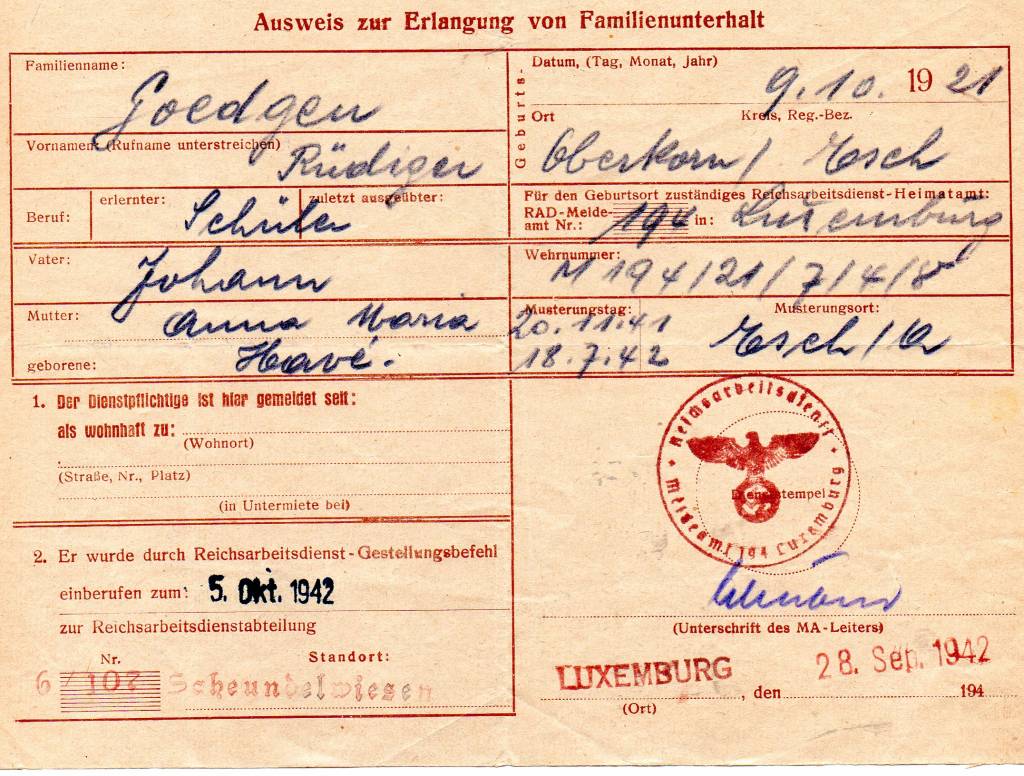 Ausweis zur Erlangung von Familienunterhalt
Familienname:
Goedgen
Vornamen: (Rufname unterstreichen)
Rüdiger
Beruf:
erlernter:
zuletzt ausgeübter:
Schüler
Vater:
Johann
Mutter:
Anna Maria
geborene:
Havé.
Geburts-
Datum, (Tag, Monat, Jahr)
9. 10. 19 21
Ort
Kreis, Reg.-Bez.
Oberkorn / Esch
Für den Geburtsort zuständiges Reichsarbeitsdienst-Heimatamt:
RAD-Melde-
amt Nr.: 194 in: Luxemburg
Wehrnummer:
M 194/21/7/4/8
Musterungstag:
Musterungsort:
20.11.41
18.7.42
Esch/
1. Der Dienstpflichtige ist hier gemeldet seit:
als wohnhaft zu:
(Wohnort)
(Straße, Nr., Platz)
(in Untermiete bei)
2. Er wurde durch Reichsarbeitsdienst-Gestellungsbefehl
einberufen zum: 5. Okt. 1942
zur Reichsarbeitsdienstabteilung
Nr.
Standort:
6 / 107 Scheundelwiesen
Reichsarbeitsdienst
Meldeamt 194 Luxemburg
Dienststempel
(Unterschrift des MA-Leiters)
LUXEMBURG, den 28. Sep. 1942
194
(Ort)